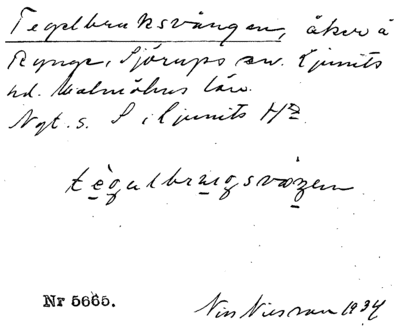 Tegelbruksvången, åker å
Rynge, Sjörups sn. Ljunits
hd. Malmöhus län.
Ngt. s. S i Ljunits Hd
tègalbrugsvaŋen
Nr 5665.
Nils Nilsson 1934